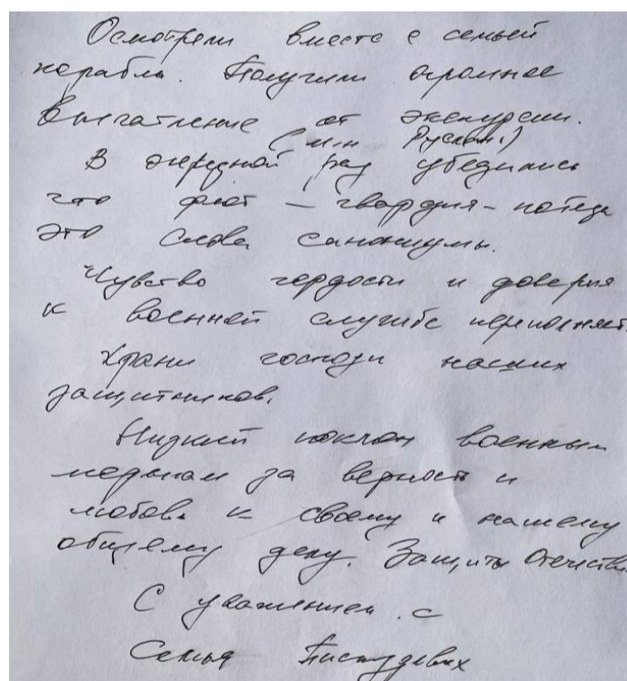 Осмотрели вместе с семьёй
корабль. Получили огромное
впечатление от экскурсии.
(м-н Руслан.)
В очередной раз убедились
что флот – гвардия – победа
это слова синонимы.
Чувство гордости и доверия
к военной службе переполняет.
Храни господи наших
защитников.
Низкий поклон военным
морякам за верность и
любовь к своему и нашему
общему делу. Защиты Отечества
С уважением. с
Семья